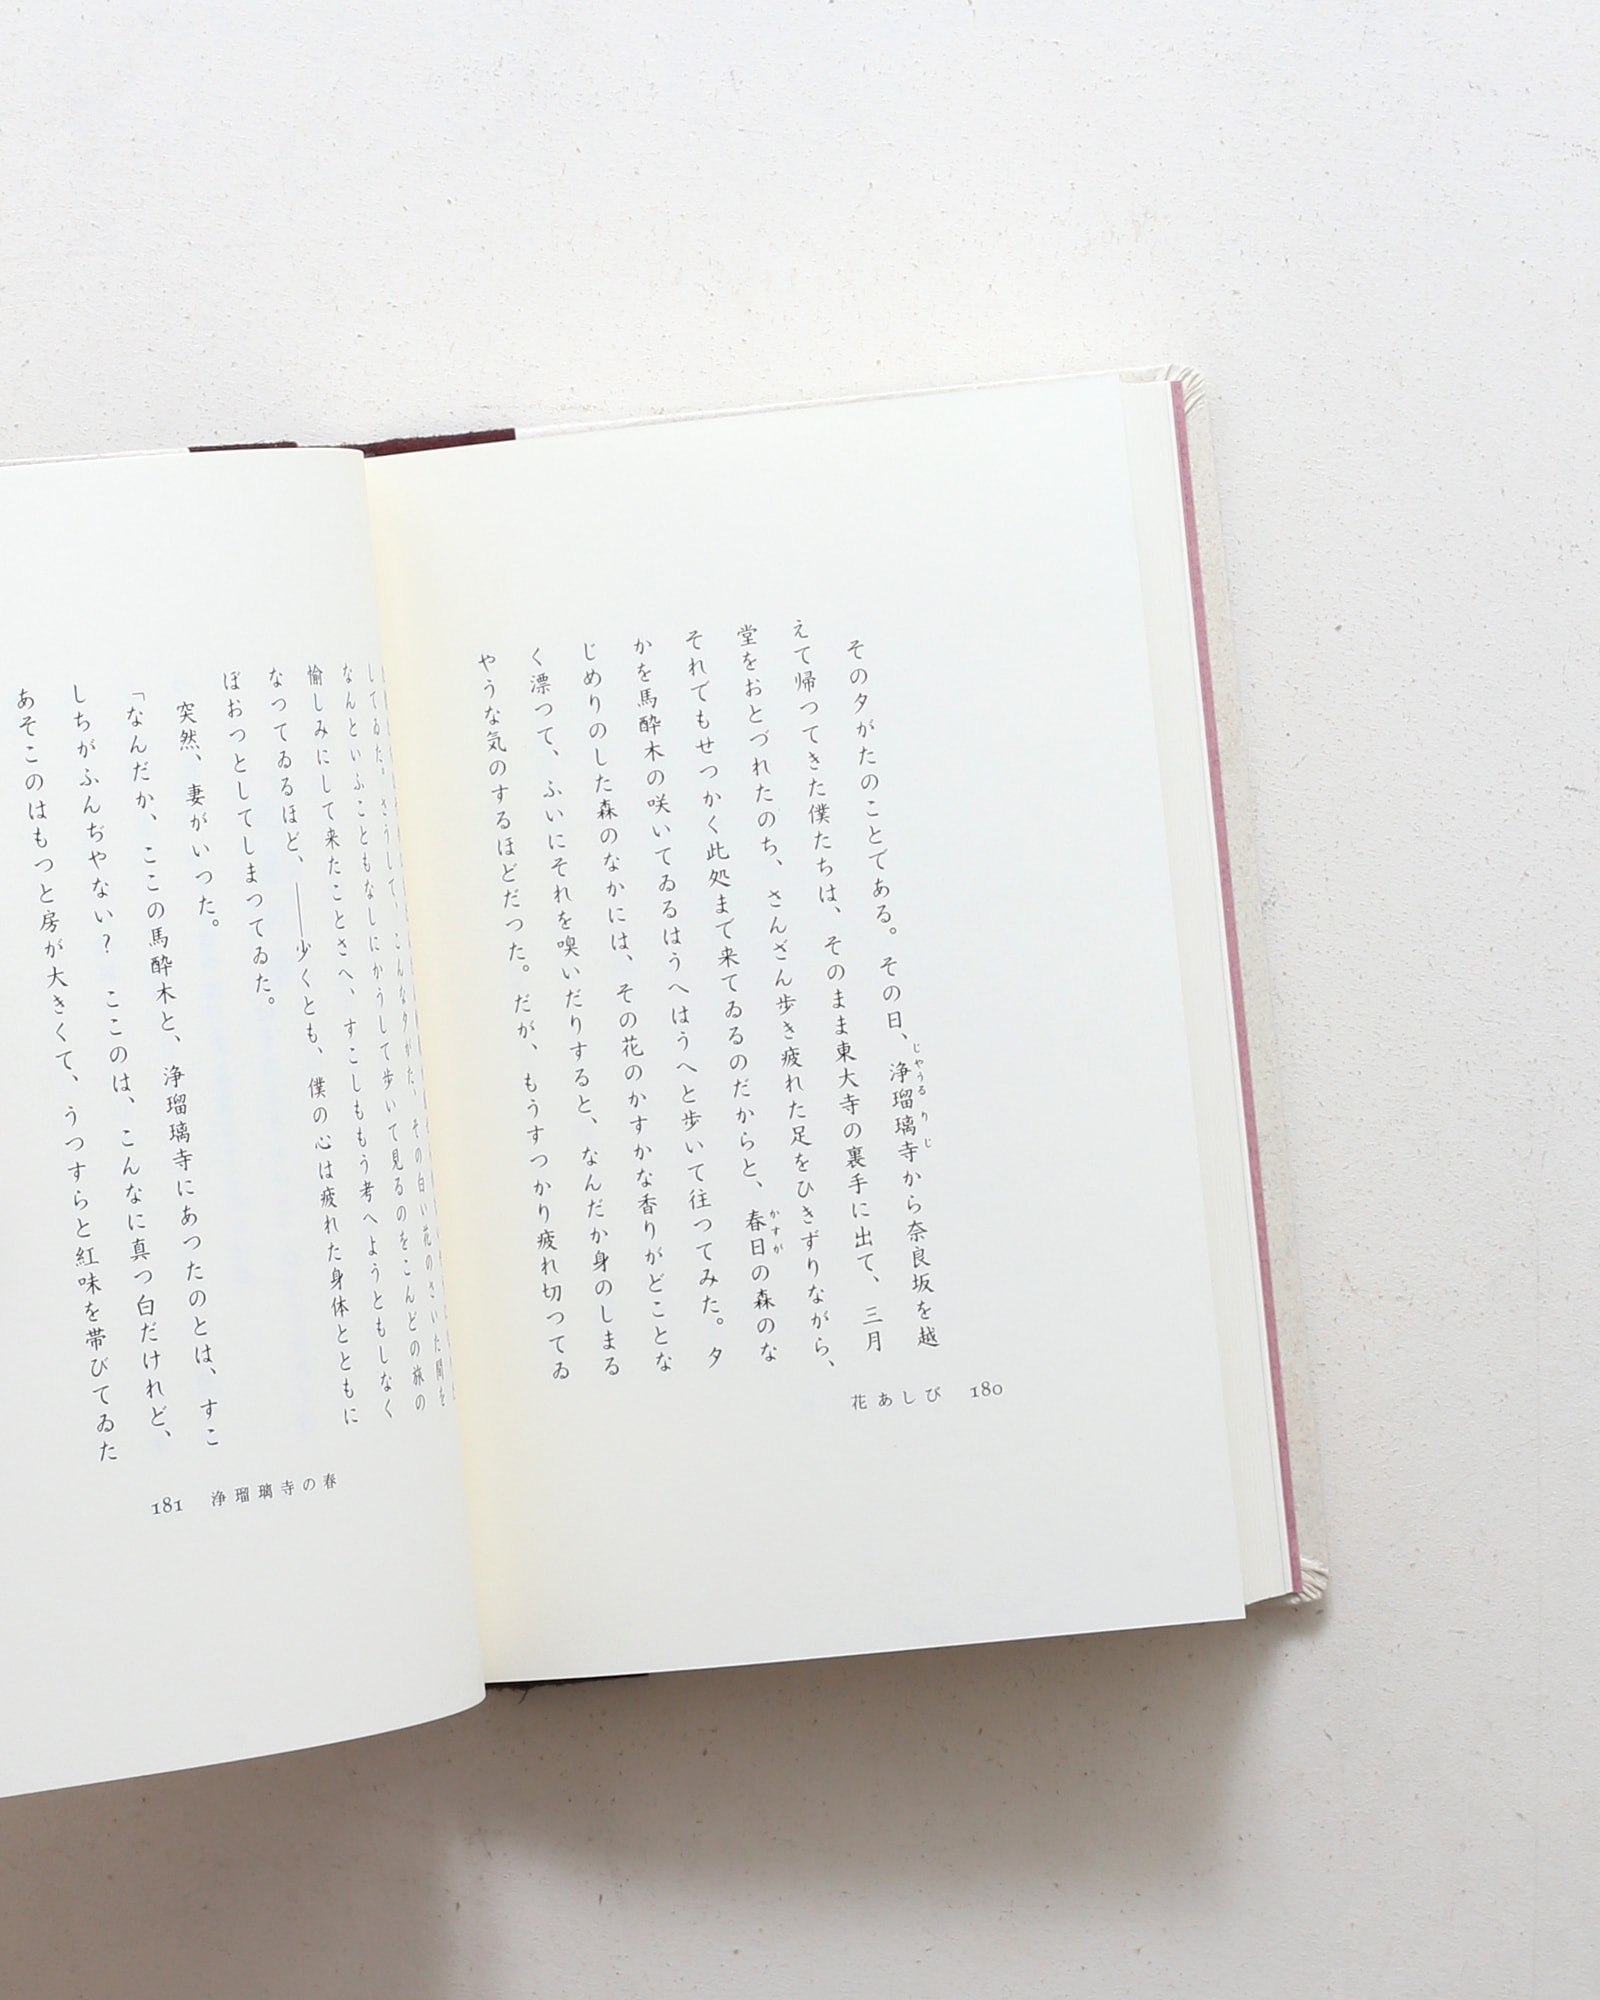 その夕がたのことである。その日、浄瑠璃寺から奈良坂を越
じやうるりじ
えて帰つてきた僕たちは、そのまま東大寺の裏手に出て、三月
堂をおとづれたのち、さんざん歩き疲れた足をひきずりながら、
それでもせつかく此処まで来てゐるのだからと、春日の森のな
かすが
かを馬酔木の咲いてゐるはうへはうへと歩いて往つてみた。夕
じめりのした森のなかには、その花のかすかな香りがどことな
く漂つて、ふいにそれを嗅いだりすると、なんだか身のしまる
やうな気のするほどだつた。だが、もうすつかり疲れ切つてゐ
花あしび 180
してゐた。さうして、こんな夕がた、その白い花のさいた間を
なんといふこともなしにかうして歩いて見るのをこんどの旅の
愉しみにして来たことさへ、すこしももう考へようともしなく
なつてゐるほど、――少くとも、僕の心は疲れた身体とともに
ぼおつとしてしまつてゐた。
突然、妻がいつた。
「なんだか、ここの馬酔木と、浄瑠璃寺にあつたのとは、すこ
しちがふんぢやない? ここのは、こんなに真つ白だけれど、
あそこのはもつと房が大きくて、うつすらと紅味を帯びてゐた
181 浄瑠璃寺の春